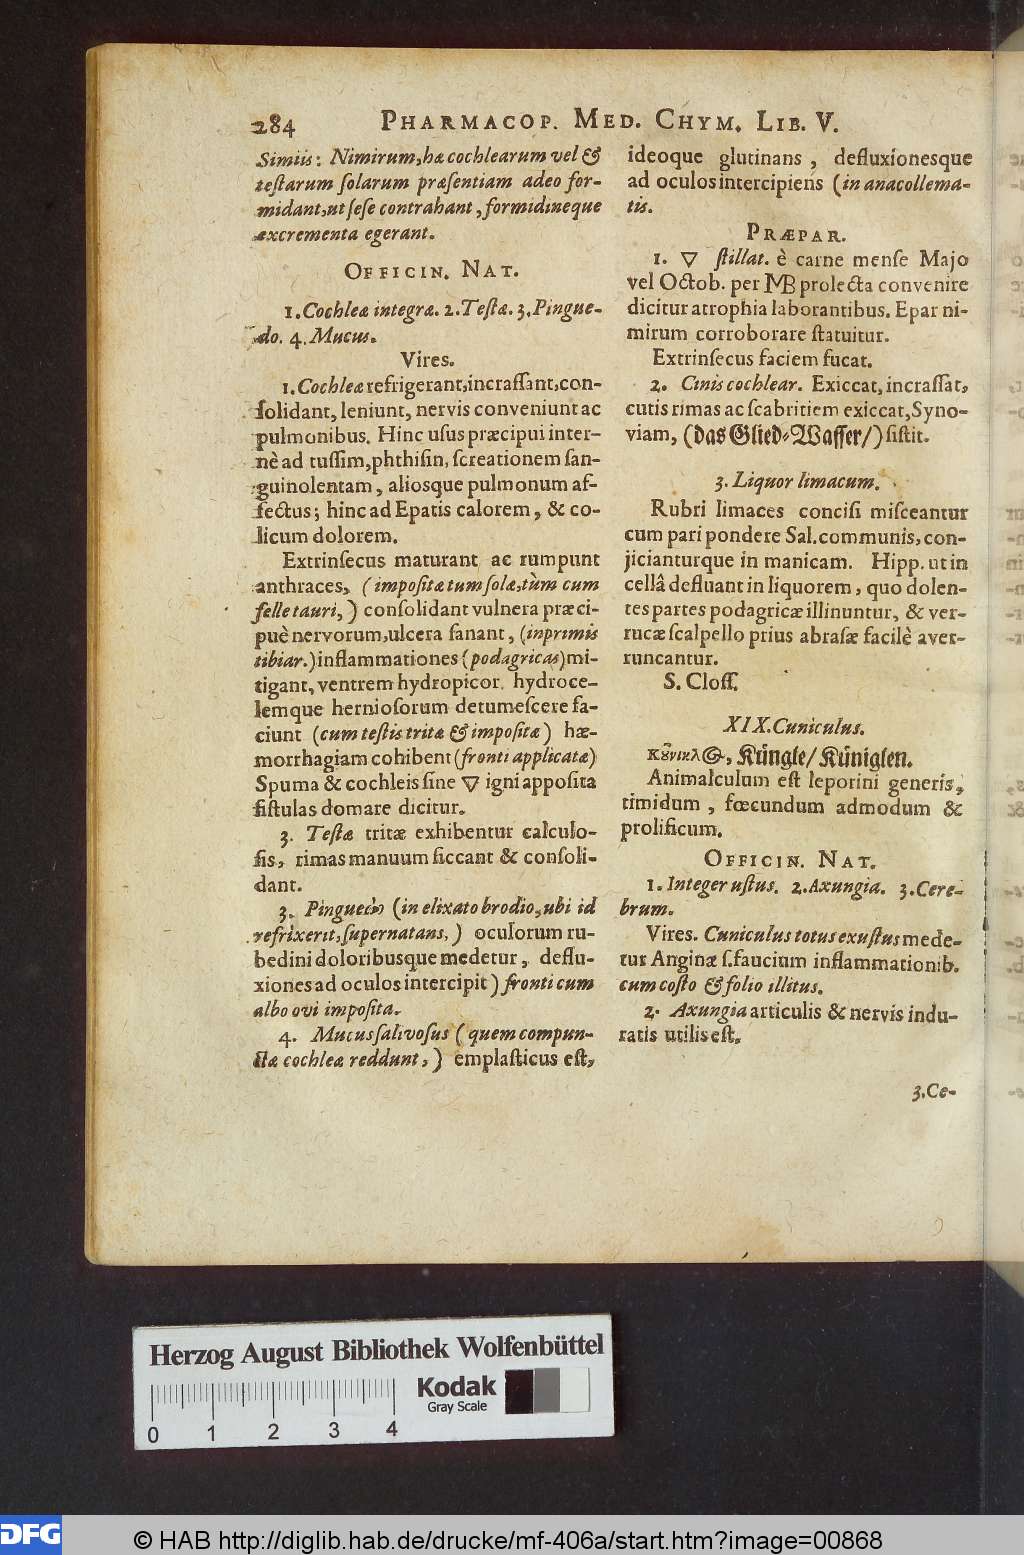 284 PHARMACOP. MED. CHYM. LIB. V.
Simiis: Nimirum, hæ cochlearum vel &
teſtarum ſolarum præſentiam adeo for-
midant, ut ſeſe contrahant, formidineque
excrementa egerant.
OFFICIN. NAT.
1. Cochleæ integræ. 2. Teſtæ. 3. Pingue-
do. 4. Mucus.
Vires.
1. Cochleæ refrigerant, incraſſant, con-
ſolidant, leniunt, nervis conveniunt ac
pulmonibus. Hinc uſus præcipui inter-
nè ad tuſſim, phthiſin, ſcreationem ſan-
guinolentam, aliosque pulmonum af-
fectus; hinc ad Epatis calorem, & co-
licum dolorem.
Extrinſecus maturant ac rumpunt
anthraces, (impoſitæ tum ſolæ, tùm cum
felle tauri,) conſolidant vulnera præci-
puè nervorum, ulcera ſanant, (inprimis
tibiar.) inflammationes (podagricas) mi-
tigant, ventrem hydropicor. hydroce-
lemque hernioſorum detumeſcere fa-
ciunt (cum teſtis tritæ & impoſitæ) hæ-
morrhagiam cohibent (fronti applicatæ)
Spuma & cochleis ſine 🜄 igni appoſita
fiſtulas domare dicitur.
3. Teſtæ tritæ exhibentur calculo-
ſis, rimas manuum ſiccant & conſoli-
dant.
3. Pinguedo (in elixato brodio, ubi id
refrixerit, ſupernatans,) oculorum ru-
bedini doloribusque medetur, deflu-
xiones ad oculos intercipit) fronti cum
albo ovi impoſita.
4. Mucus ſalivoſus (quem compun-
ctæ cochleæ reddunt,) emplaſticus eſt,
ideoque glutinans, defluxionesque
ad oculos intercipiens (in anacollema-
tis.
PRÆPAR.
1. 🜄 ſtillat. è carne menſe Majo
vel Octob. per MB prolecta convenire
dicitur atrophia laborantibus. Epar ni-
mirum corroborare ſtatuitur.
Extrinſecus faciem fucat.
2. Cinis cochlear. Exiccat, incraſſat,
cutis rimas ac ſcabritiem exiccat, Syno-
viam, (das Glied-Waſſer/) ſiſtit.
3. Liquor limacum.
Rubri limaces conciſi miſceantur
cum pari pondere Sal. communis, con-
jicianturque in manicam. Hipp. ut in
cellâ defluant in liquorem, quo dolen-
tes partes podagricæ illinuntur, & ver-
rucæ ſcalpello prius abraſæ facilè aver-
runcantur.
S. Cloſſ.
XIX. Cuniculus.
Küngle/ Küniglen.
Animalculum eſt leporini generis,
timidum, fœcundum admodum &
prolificum.
OFFICIN. NAT.
1. Integer uſtus. 2. Axungia. 3. Cere-
brum.
Vires. Cuniculus totus exuſtus mede-
tur Anginæ ſ. faucium inflammationib.
cum coſto & folio illitus.
2. Axungia articulis & nervis indu-
ratis utilis eſt.
3. Ce-
Herzog August Bibliothek Wolfenbüttel
Kodak
Gray Scale
0 1 2 3 4
DFG
© HAB http://diglib.hab.de/drucke/mf-406a/start.htm?image=00868